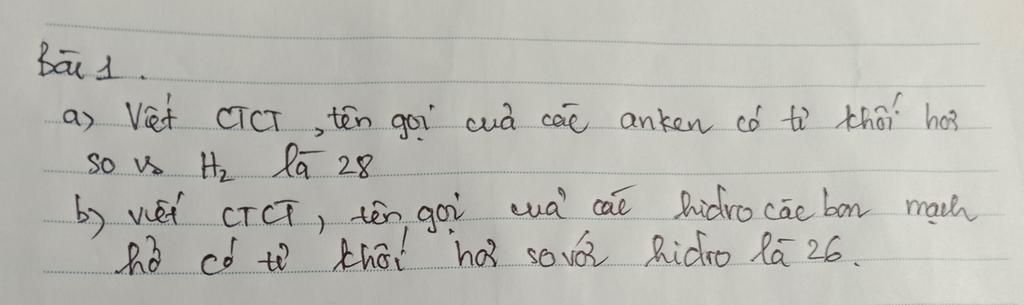 Bài 1.
a) Viết CTCT, tên gọi của các anken có tỉ khối hơi
so vs H₂ là 28
b) viết CTCT, tên gọi của các hidro các bon mạch
hở có tỉ khối hơi so với hidro là 26.